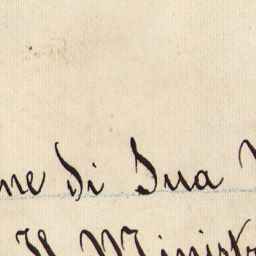 ne di Sua
Il Ministr